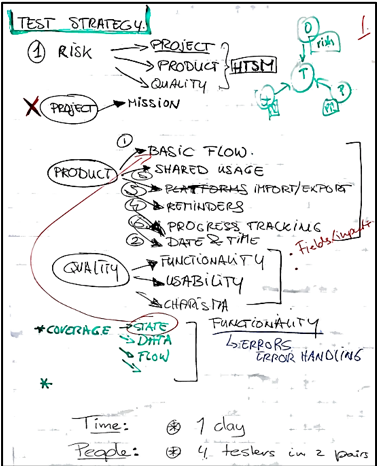 TEST STRATEGY.
1.
① RISK → PROJECT
→ PRODUCT
→ QUALITY
HTSM
O
risk
T
?
X PROJECT → MISSION
① BASIC FLOW.
PRODUCT
⑥ SHARED USAGE
⑤ PLATFORMS IMPORT/EXPORT
④ REMINDERS
PROGRESS TRACKING
② DATE & TIME
QUALITY → FUNCTIONALITY
→ USABILITY
→ CHARISMA
* COVERAGE → STATE
→ DATA
→ FLOW
*
FUNCTIONALITY
↳ ERRORS
ERROR HANDLING
Time: * 1 day
People: * 4 testers in 2 pairs